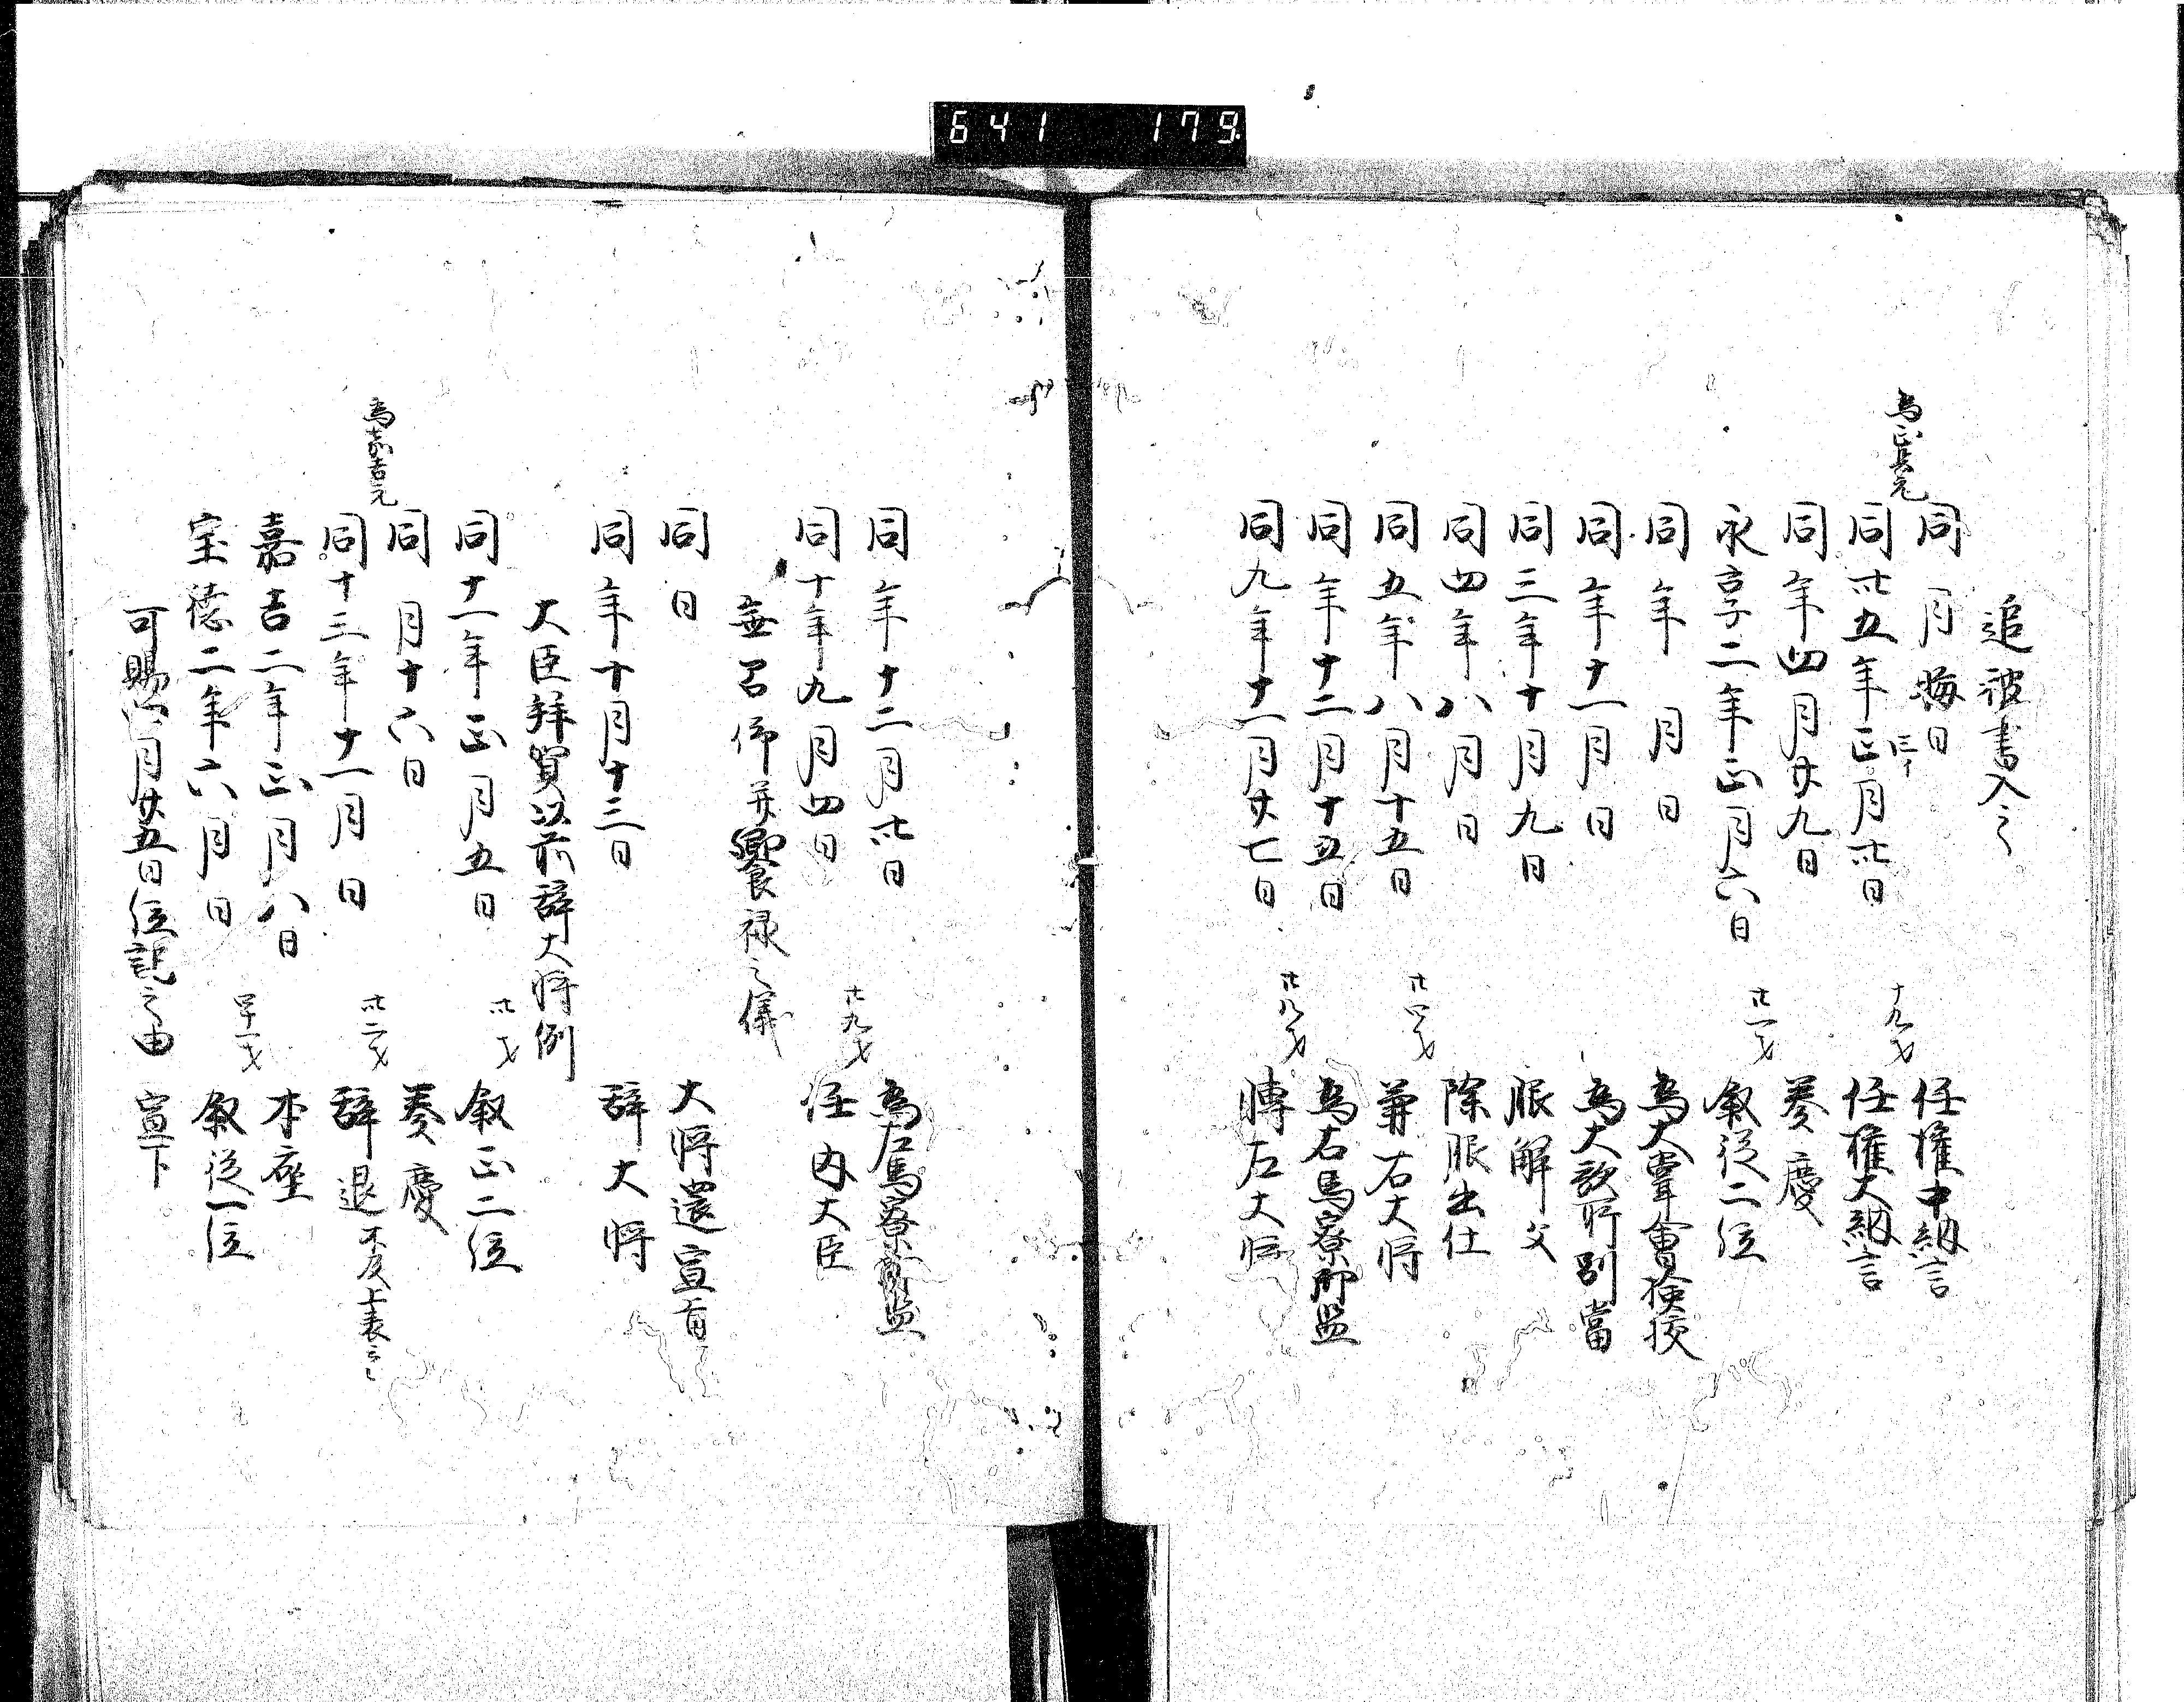 641 179
追被書入之
同 月晦日 任権中納言
為正長元
同卅五年正月卅日 十九才 任権大納言
同年四月廿九日 奏慶
永享二年正月六日 廿一才 叙従二位
同年 月 日 為大嘗會検校
同年十一月 日 為大歌所別當
同三年十月九日 服解父
同四年八月 日 除服出仕
同五年八月十五日 廿四才 兼右大将
同年十二月十五日 為右馬寮御監
同九年十一月廿七日 廿八才 轉左大将
同年十二月卅日 為左馬寮御監
同十年九月四日 廿九才 任内大臣
無召仰并饗禄之儀
同日 大将還宣旨
同年十月十三日 辞大将
大臣拝賀以前辞大将例
同十一年正月五日 卅才 叙正二位
同 月十六日 奏慶
為嘉吉元
同十三年十一月 日 卅二才 辞退 不及上表云々
嘉吉二年三月八日 本座
宝徳二年六月 日 四十一才 叙従一位
可賜 月廿五日位記之由 宣下